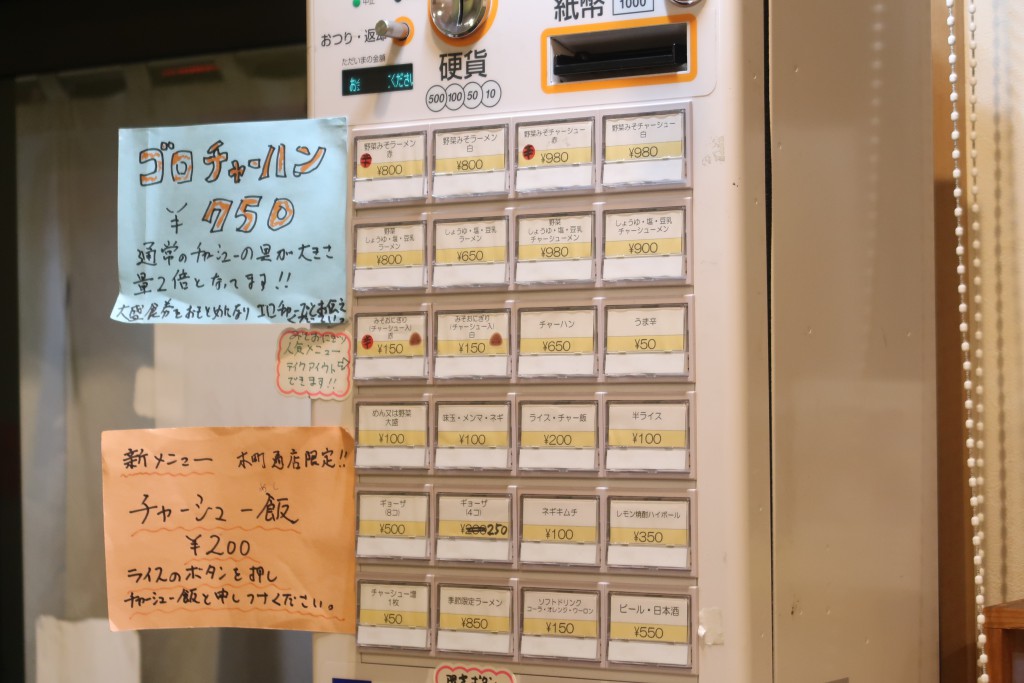 紙幣
1000
おつり・返却
ただいまの金額
硬貨
500 100 50 10
ゴロチャーハン
¥750
通常のチャーシューの具が大きさ
量2倍となってます!!
新メニュー 本町通店限定!!
チャーシュー飯
めし
¥200
ライスのボタンを押し
チャーシュー飯と申しつけください。
みそおにぎり
人気メニュー
テイクアウト
できます!!
野菜みそラーメン
赤
辛
¥800
野菜みそラーメン
白
¥800
野菜みそチャーシュー
赤
辛
¥980
野菜みそチャーシュー
白
¥980
野菜
しょうゆ・塩・豆乳
ラーメン
¥800
しょうゆ・塩・豆乳
ラーメン
¥650
野菜
しょうゆ・塩・豆乳
チャーシューメン
¥980
しょうゆ・塩・豆乳
チャーシューメン
¥900
みそおにぎり
(チャーシュー入)
赤
辛
¥150
みそおにぎり
(チャーシュー入)
白
¥150
チャーハン
¥650
うま辛
¥50
めん又は野菜
大盛
¥100
味玉・メンマ・ネギ
¥100
ライス・チャー飯
¥200
半ライス
¥100
ギョーザ
(8コ)
¥500
ギョーザ
(4コ)
¥200 250
ネギキムチ
¥100
レモン焼酎ハイボール
¥350
チャーシュー増
1枚
¥50
季節限定ラーメン
¥850
ソフトドリンク
コーラ・オレンジ・ウーロン
¥150
ビール・日本酒
¥550